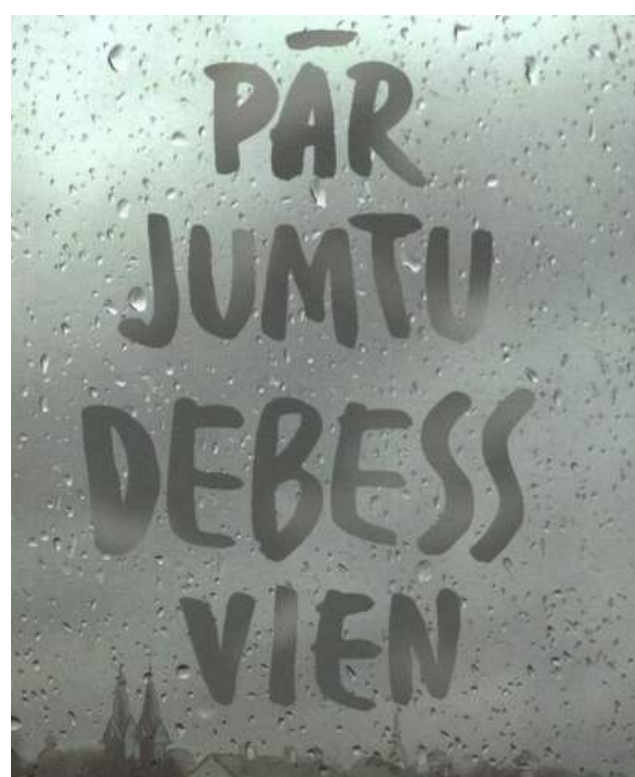 PĀR
JUMTU
DEBESS
VIEN